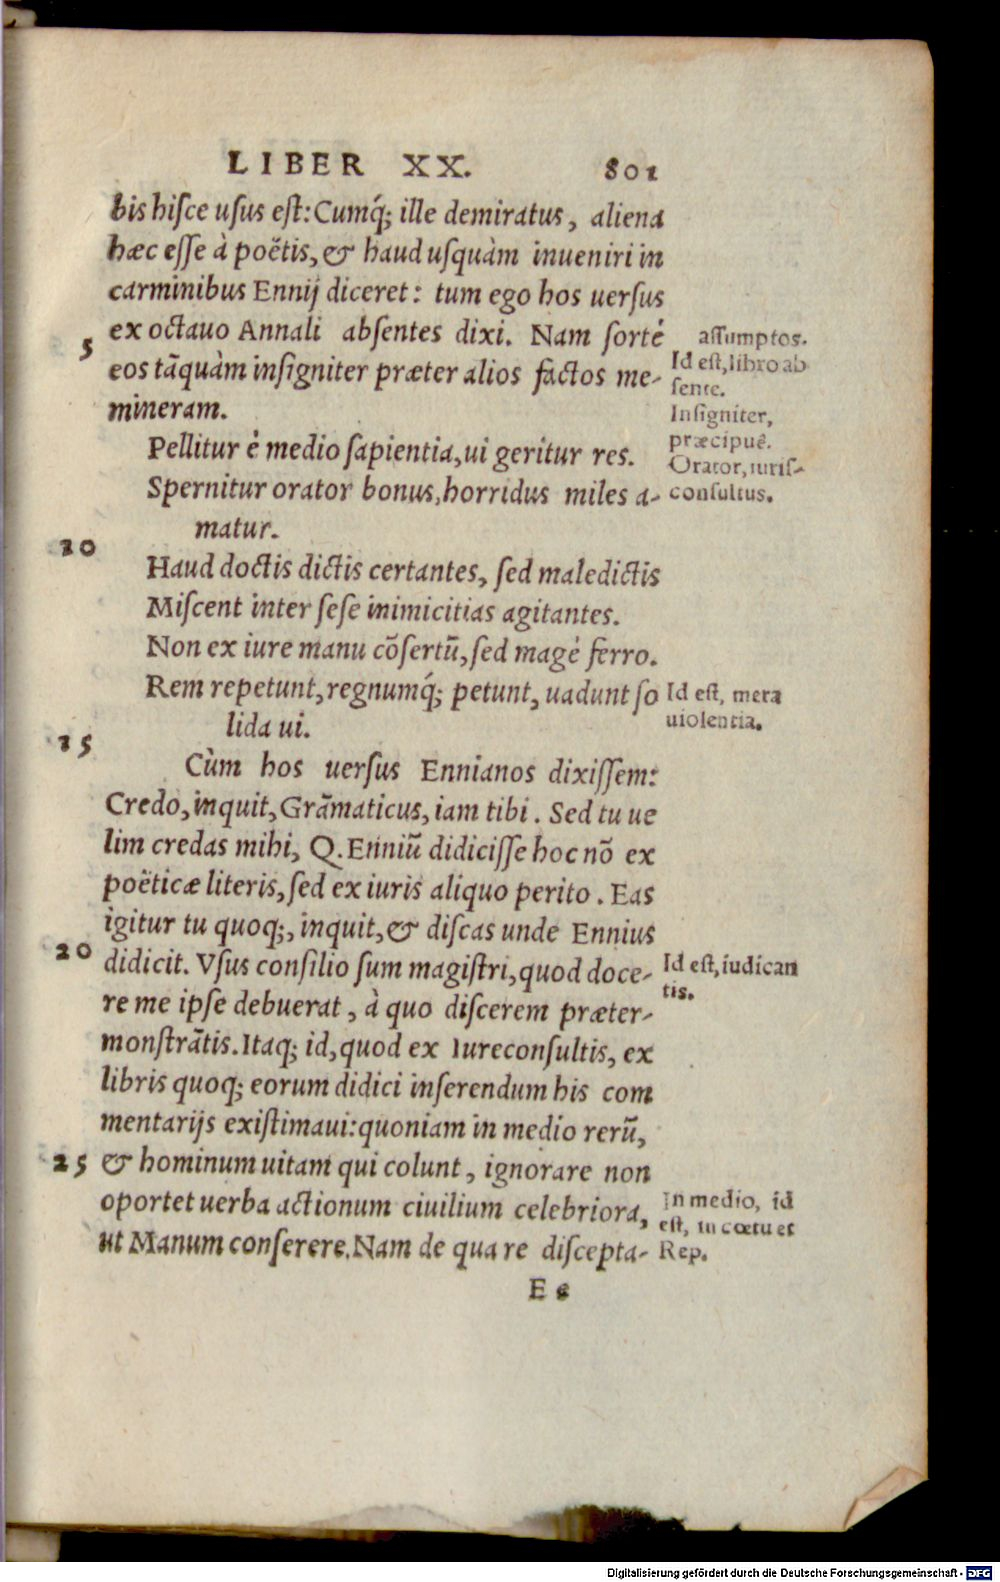 LIBER XX. 801
bis hisce usus est: Cumq́; ille demiratus, aliena
hæc esse à poëtis, & haud usquàm inueniri in
carminibus Ennij diceret: tum ego hos uersus
ex octauo Annali absentes dixi. Nam sortè
assumptos.
5
eos tãquàm insigniter præter alios factos me-
Id est, libro ab
sente.
mineram.
Insigniter,
præcipuè.
Pellitur è medio sapientia, ui geritur res.
Orator, iuris-
Spernitur orator bonus, horridus miles a-
consultus.
matur.
10
Haud doctis dictis certantes, sed maledictis
Miscent inter sese inimicitias agitantes.
Non ex iure manu cõsertũ, sed magè ferro.
Rem repetunt, regnumq́; petunt, uadunt so
Id est, mera
uiolentia.
lida ui.
15
Cùm hos uersus Ennianos dixissem:
Credo, inquit, Grãmaticus, iam tibi. Sed tu ue
lim credas mihi, Q. Enniũ didicisse hoc nõ ex
poëticæ literis, sed ex iuris aliquo perito. Eas
igitur tu quoq;, inquit, & discas unde Ennius
20
didicit. Vsus consilio sum magistri, quod doce-
Id est, iudican
tis.
re me ipse debuerat, à quo discerem præter-
monstrãtis. Itaq; id, quod ex Iureconsultis, ex
libris quoq; eorum didici inserendum his com
mentarijs existimaui: quoniam in medio rerũ,
25
& hominum uitam qui colunt, ignorare non
oportet uerba actionum ciuilium celebriora,
In medio, id
est, in cœtu et
ut Manum conserere. Nam de qua re discepta-
Rep.
E e
Digitalisierung gefördert durch die Deutsche Forschungsgemeinschaft - DFG